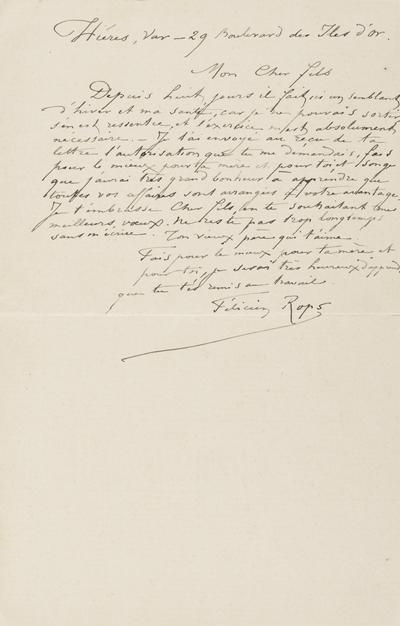 Hières, Var – 29 Boulevard des Iles d'or.
Mon Cher fils
Depuis huit jours il fait ici un semblant
d'hiver et ma santé, car je ne pouvais sortir
s'en est ressentie, et l'exercice m'est absolument
nécessaire. – Je t'ai envoyé au reçu de ta
lettre l'autorisation que tu me demandais, fais
pour le mieux pour ta mère et pour toi et songe
que j'aurai très grand bonheur à apprendre que
toutes vos affaires sont arrangées à votre avantage.
Je t'embrasse Cher fils, en te souhaitant tous
meilleurs vœux. Ne reste pas trop longtemps
sans m'écrire – Ton vieux père qui t'aime.
Fais pour le mieux pour ta mère et
pour toi, je serais très heureux d'apprendre
que tu t'es remis au travail.
Félicien Rops